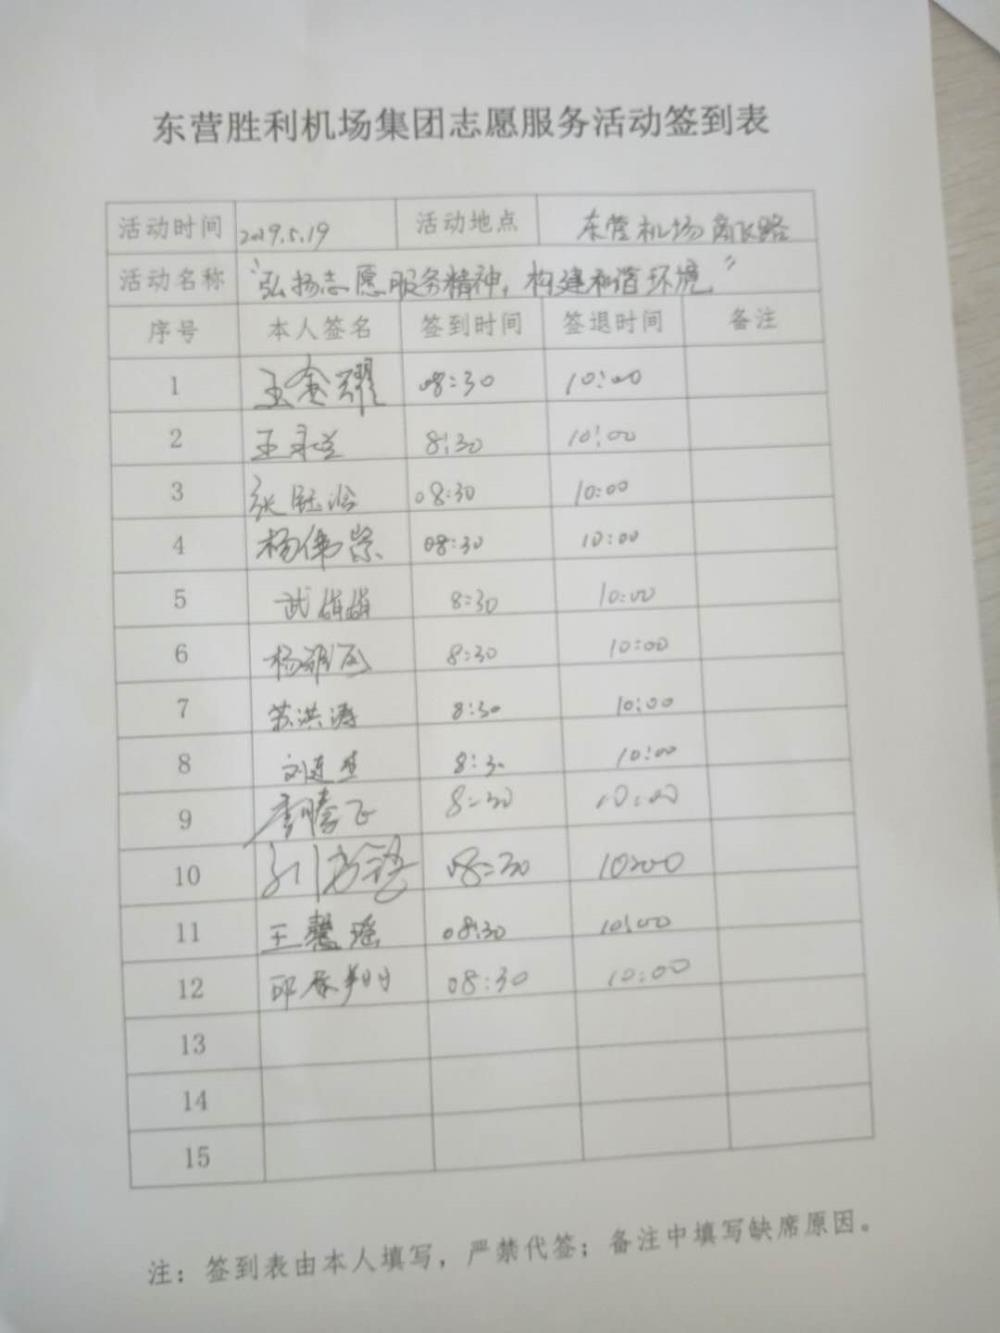 东营胜利机场集团志愿服务活动签到表
活动时间 2019.5.19 活动地点 东营机场商飞路
活动名称 "弘扬志愿服务精神，构建和谐环境"
序号 本人签名 签到时间 签退时间 备注
1 王金耀 08:30 10:00
2 王 8:30 10:00
3 张 08:30 10:00
4 杨伟崇 08:30 10:00
5 武娟娟 8:30 10:00
6 杨 8:30 10:00
7 苏洪涛 8:30 10:00
8 刘连 8:30 10:00
9 腾飞 8:30 10:00
10 08:30 10:00
11 王慧瑶 08:30 10:00
12 邱春 08:30 10:00
13
14
15
注：签到表由本人填写，严禁代签；备注中填写缺席原因。